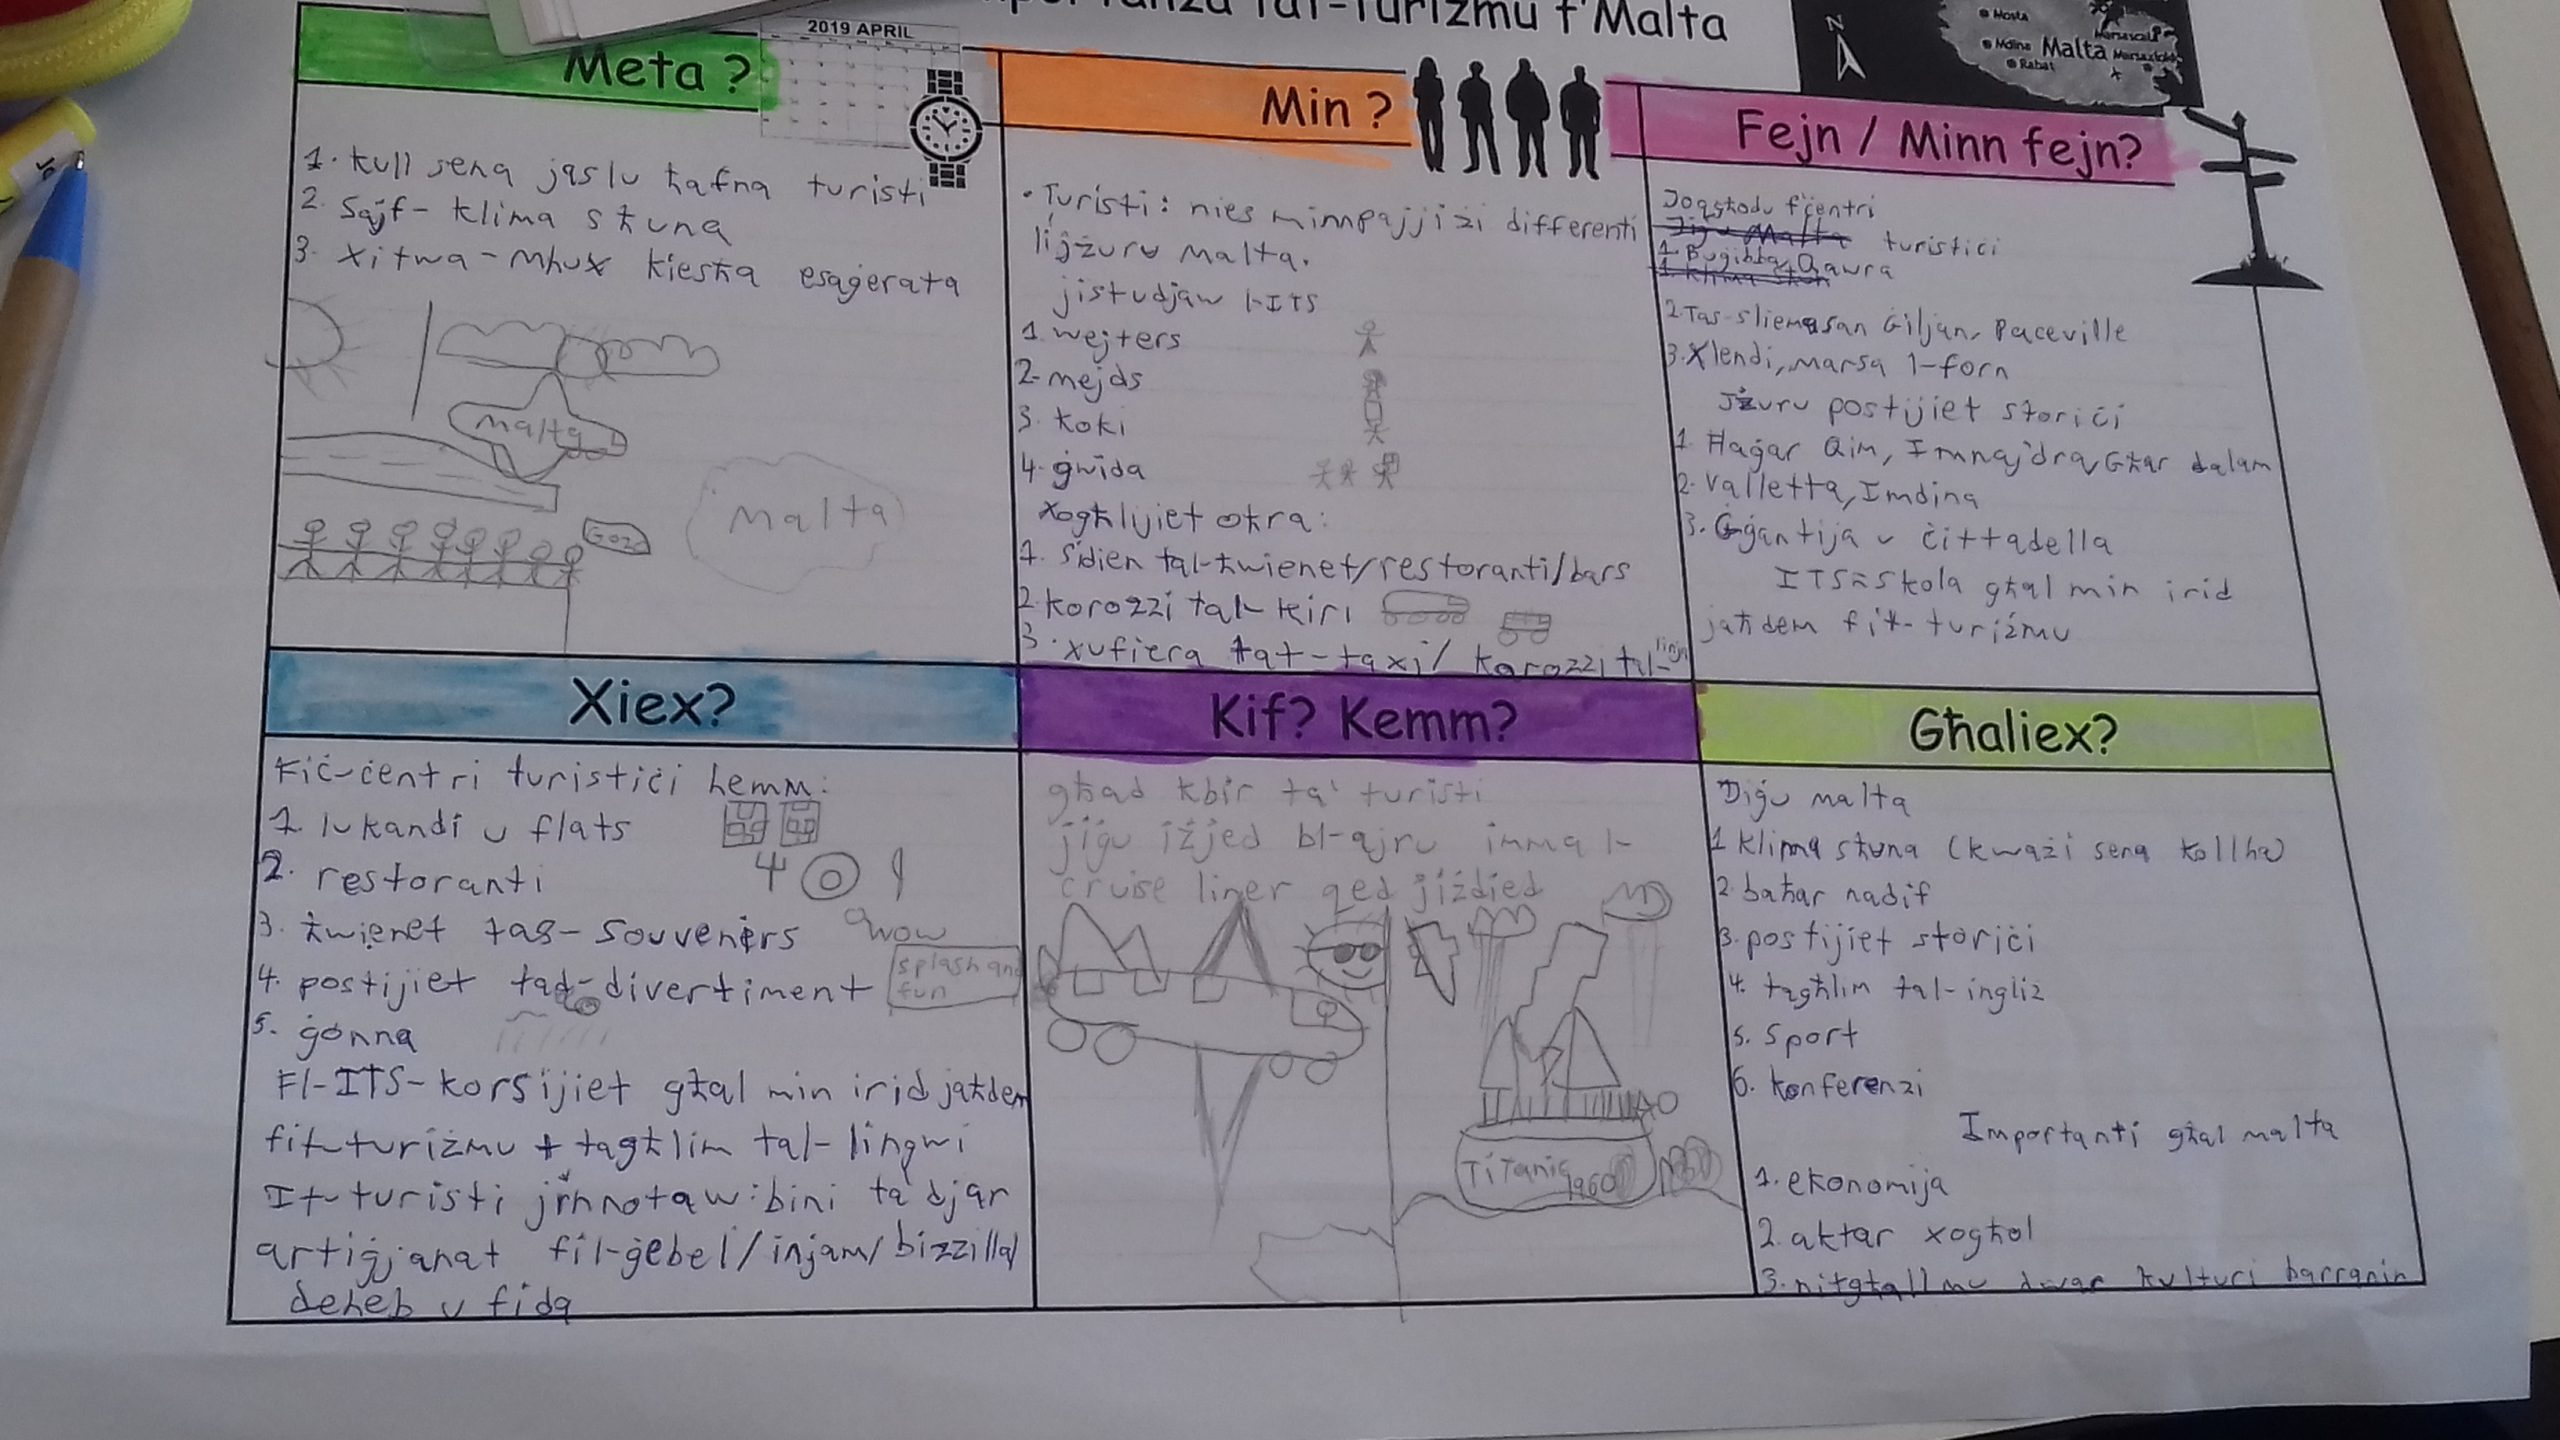 tat-Turiżmu f'Malta
2019 APRIL
N
Mosta
Mdina
Malta
Rabat
Meta ?
1. kull sena jaslu ħafna turisti
2. Sajf - klima sħuna
3. xitwa - mhux kiesħa esaġerata
Malta
Malta
Gozo
Min ?
• Turisti: nies minn pajjiżi differenti
li jżuru malta.
jistudjaw l-ITS
1. wejters
2. mejds
3. koki
4. gwida
xogħlijiet oħra:
1. Sidien tal-ħwienet/restoranti/bars
2. korozzi tal-kiri
3. xufiera tat-taxi/ karozzi tal-linja
Fejn / Minn fejn?
Joqgħodu f'ċentri
turistiċi
1. Buġibba, Qawra
2. Tas-sliema, san Ġiljan, Paceville
3. Xlendi, marsa l-forn
Jżuru postijiet storiċi
1. Ħaġar Qim, Imnajdra, Għar dalam
2. Valletta, Imdina
3. Ġgantija u ċittadella
ITS = skola għal min irid
jaħdem fit-turiżmu
Xiex?
Fiċ-ċentri turistiċi hemm:
1. lukandi u flats
2. restoranti
3. ħwienet tas-souveniers
wow
4. postijiet tad-divertiment
splash and
fun
5. ġonna
Fl-ITS-korsijiet għal min irid jaħdem
fit-turiżmu + tagħlim tal-lingwi
It-turisti jinnotaw: bini ta' djar
artiġjanat fil-ġebel/injam/bizzilla/
deheb u fidq
Kif? Kemm?
għad kbir ta' turisti
jiġu iżjed bl-ajru imma l-
cruise liner qed jiżdied
Titanic
1960
Għaliex?
Jiġu malta
1. klima sħuna (kważi sena kollha)
2. baħar nadif
3. postijiet storiċi
4. tagħlim tal-ingliz
5. sport
6. konferenzi
Importanti għal malta
1. ekonomija
2. aktar xogħol
3. nitgħallmu dwar kulturi barranin